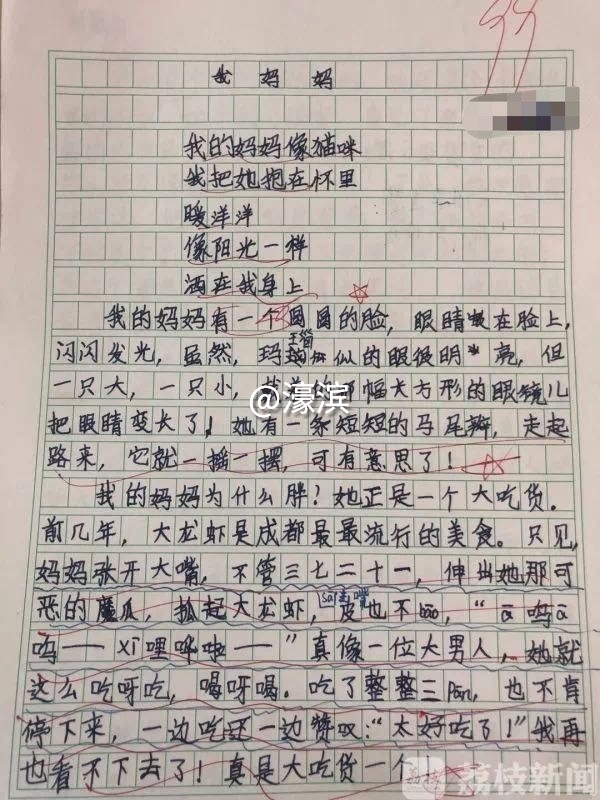 99
我妈妈
我的妈妈像猫咪
我把她抱在怀里
暖洋洋
像阳光一样
洒在我身上
我的妈妈有一个圆圆的脸，眼睛在脸上，
闪闪发光，虽然，玛似的眼很明亮，但
一只大，一只小，幅大方形的眼镜儿
把眼睛变长了！她有一条短短的马尾辫，走起
路来，它就一摇一摆，可有意思了！
我的妈妈为什么胖？她正是一个大吃货。
前几年，大龙虾是成都最最流行的美食。只见，
妈妈张开大嘴，不管三七二十一，伸出她那可
恶的魔爪，抓起大龙虾，皮也不bāo，“ā呜ā
呜——xī哩哗啦——”真像一位大男人，她就
这么吃呀吃，喝呀喝。吃了整整三pán，也不肯
停下来，一边吃还一边赞叹：“太好吃了！”我再
也看不下去了！真是大吃货一个
@濠滨
荔枝新闻